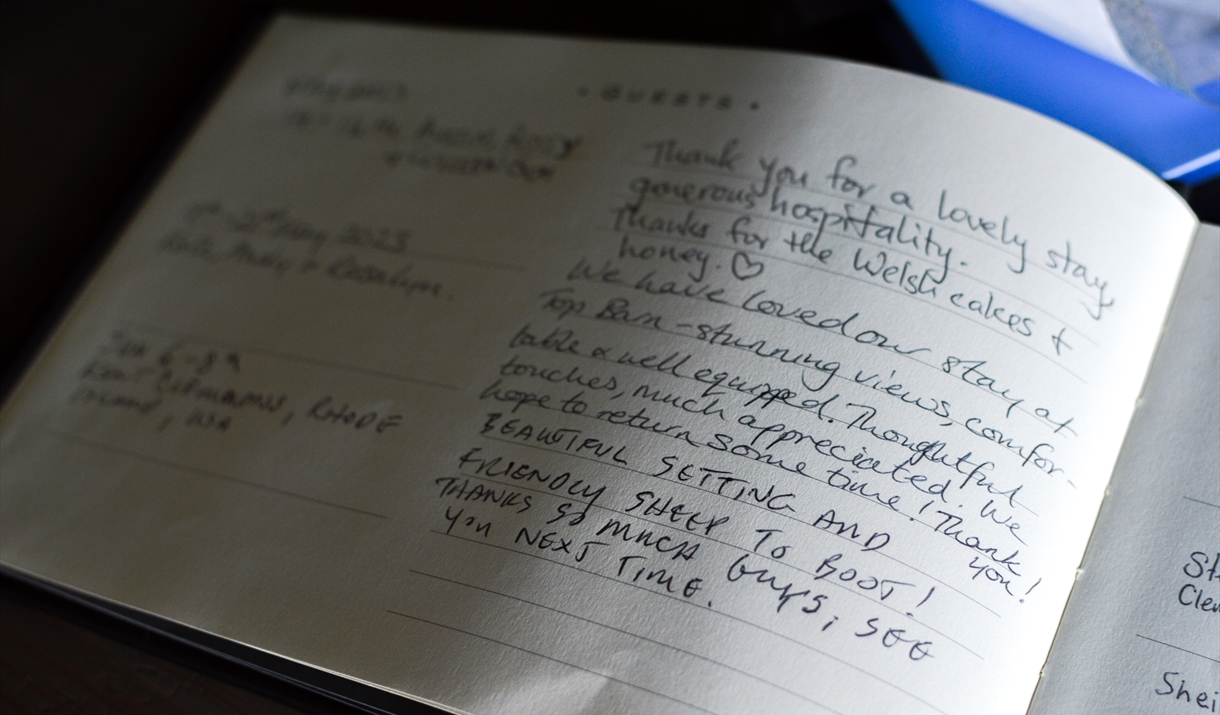 • GUESTS •
Thank you for a lovely stay,
generous hospitality.
Thanks for the Welsh cakes +
honey. ♡
We have loved our stay at
Top Barn - stunning views, comfor-
table & well equipped. Thoughtful
touches, much appreciated. We
hope to return some time! Thank
you!
BEAUTIFUL SETTING AND
FRIENDLY SHEEP TO BOOT!
THANKS SO MUCH GUYS, SEE
YOU NEXT TIME.
May 2023
RHODE
ISLAND, USA
Shei